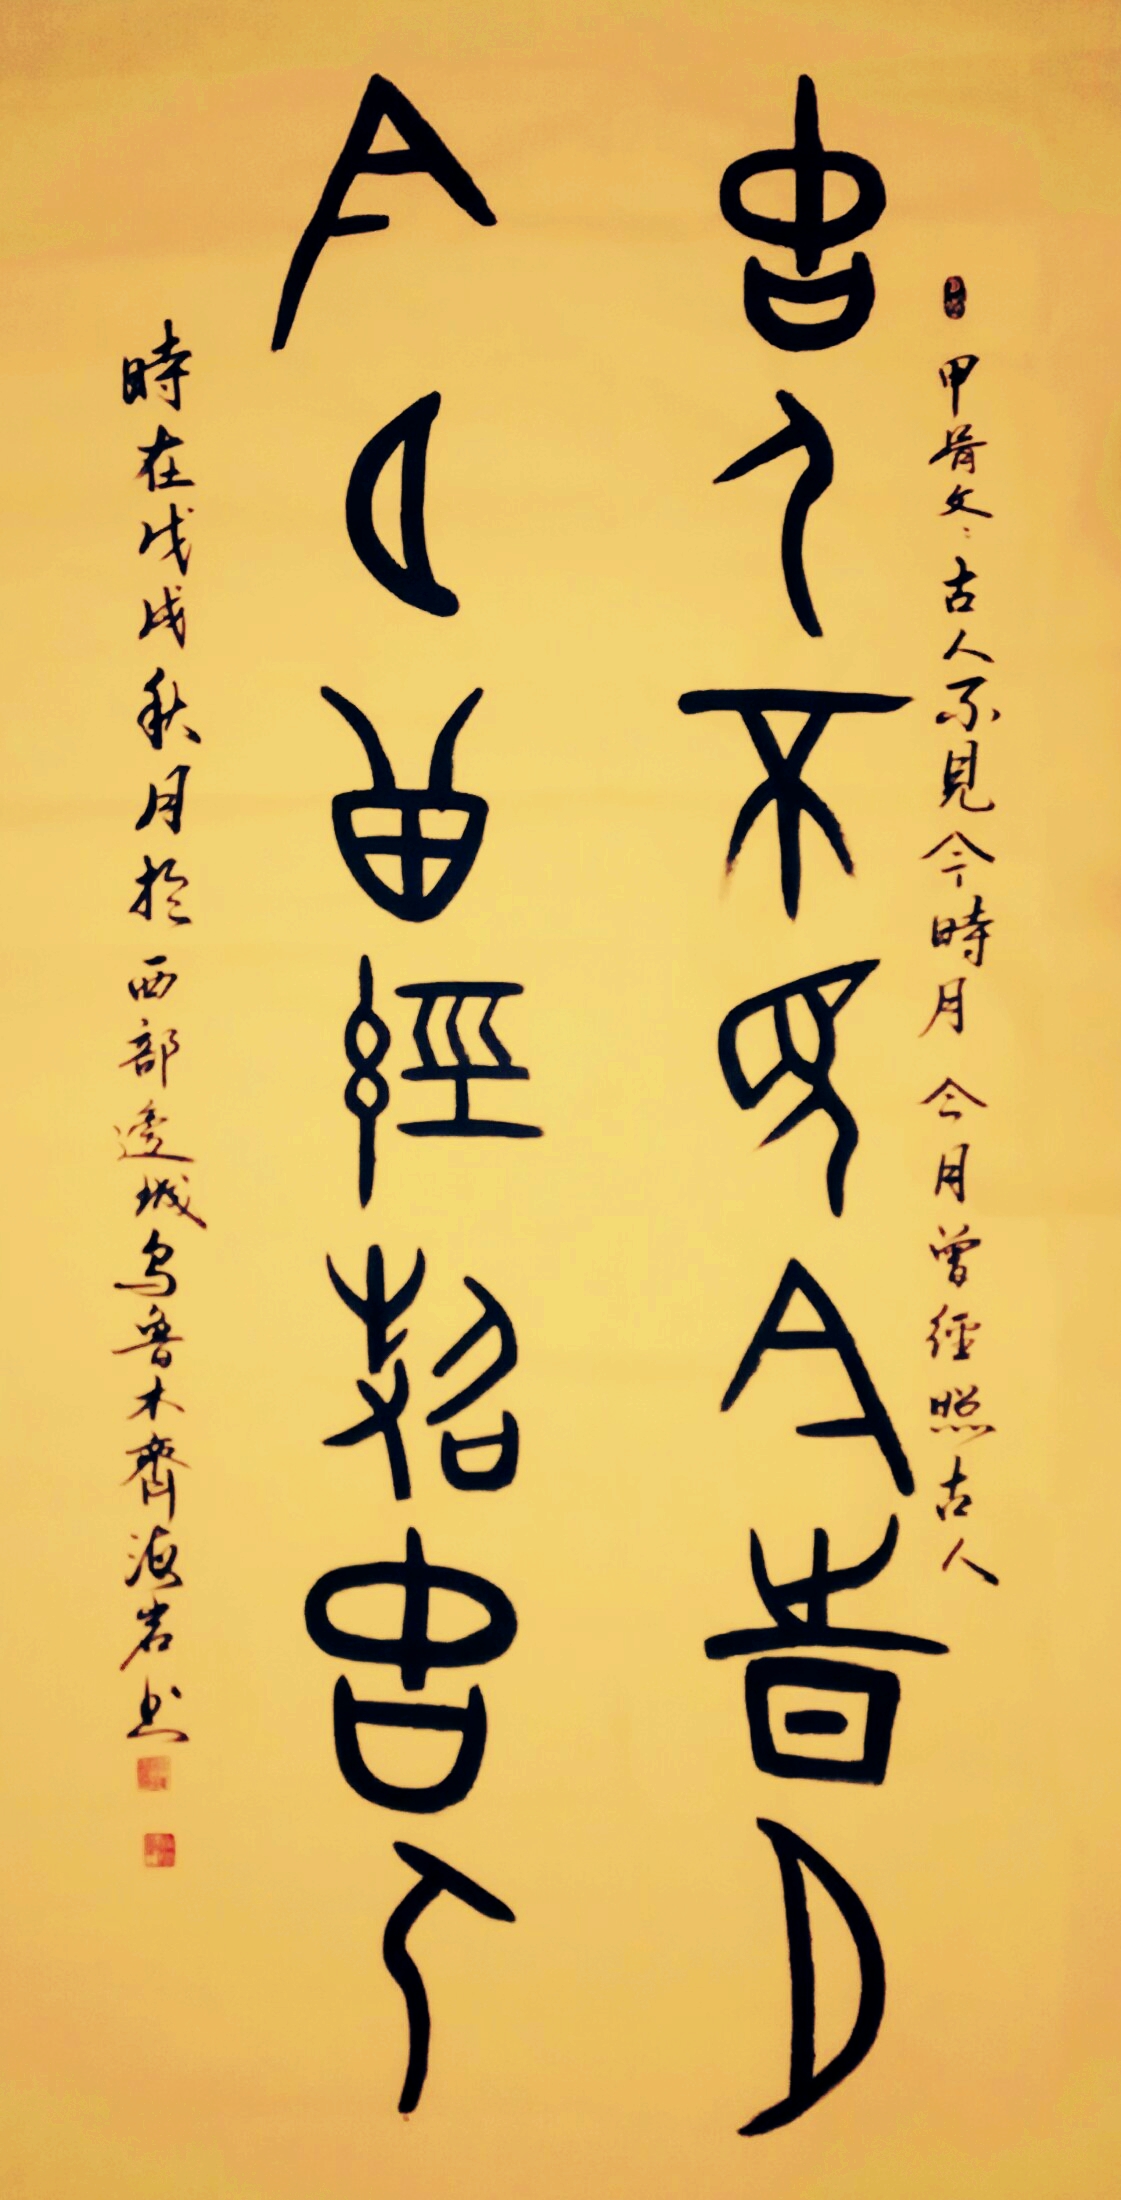 甲骨文:古人不見今時月 今月曾經照古人
古人不見今時月
今月曾經照古人
時在戊戌秋月於西部邊城烏魯木齊海岩书